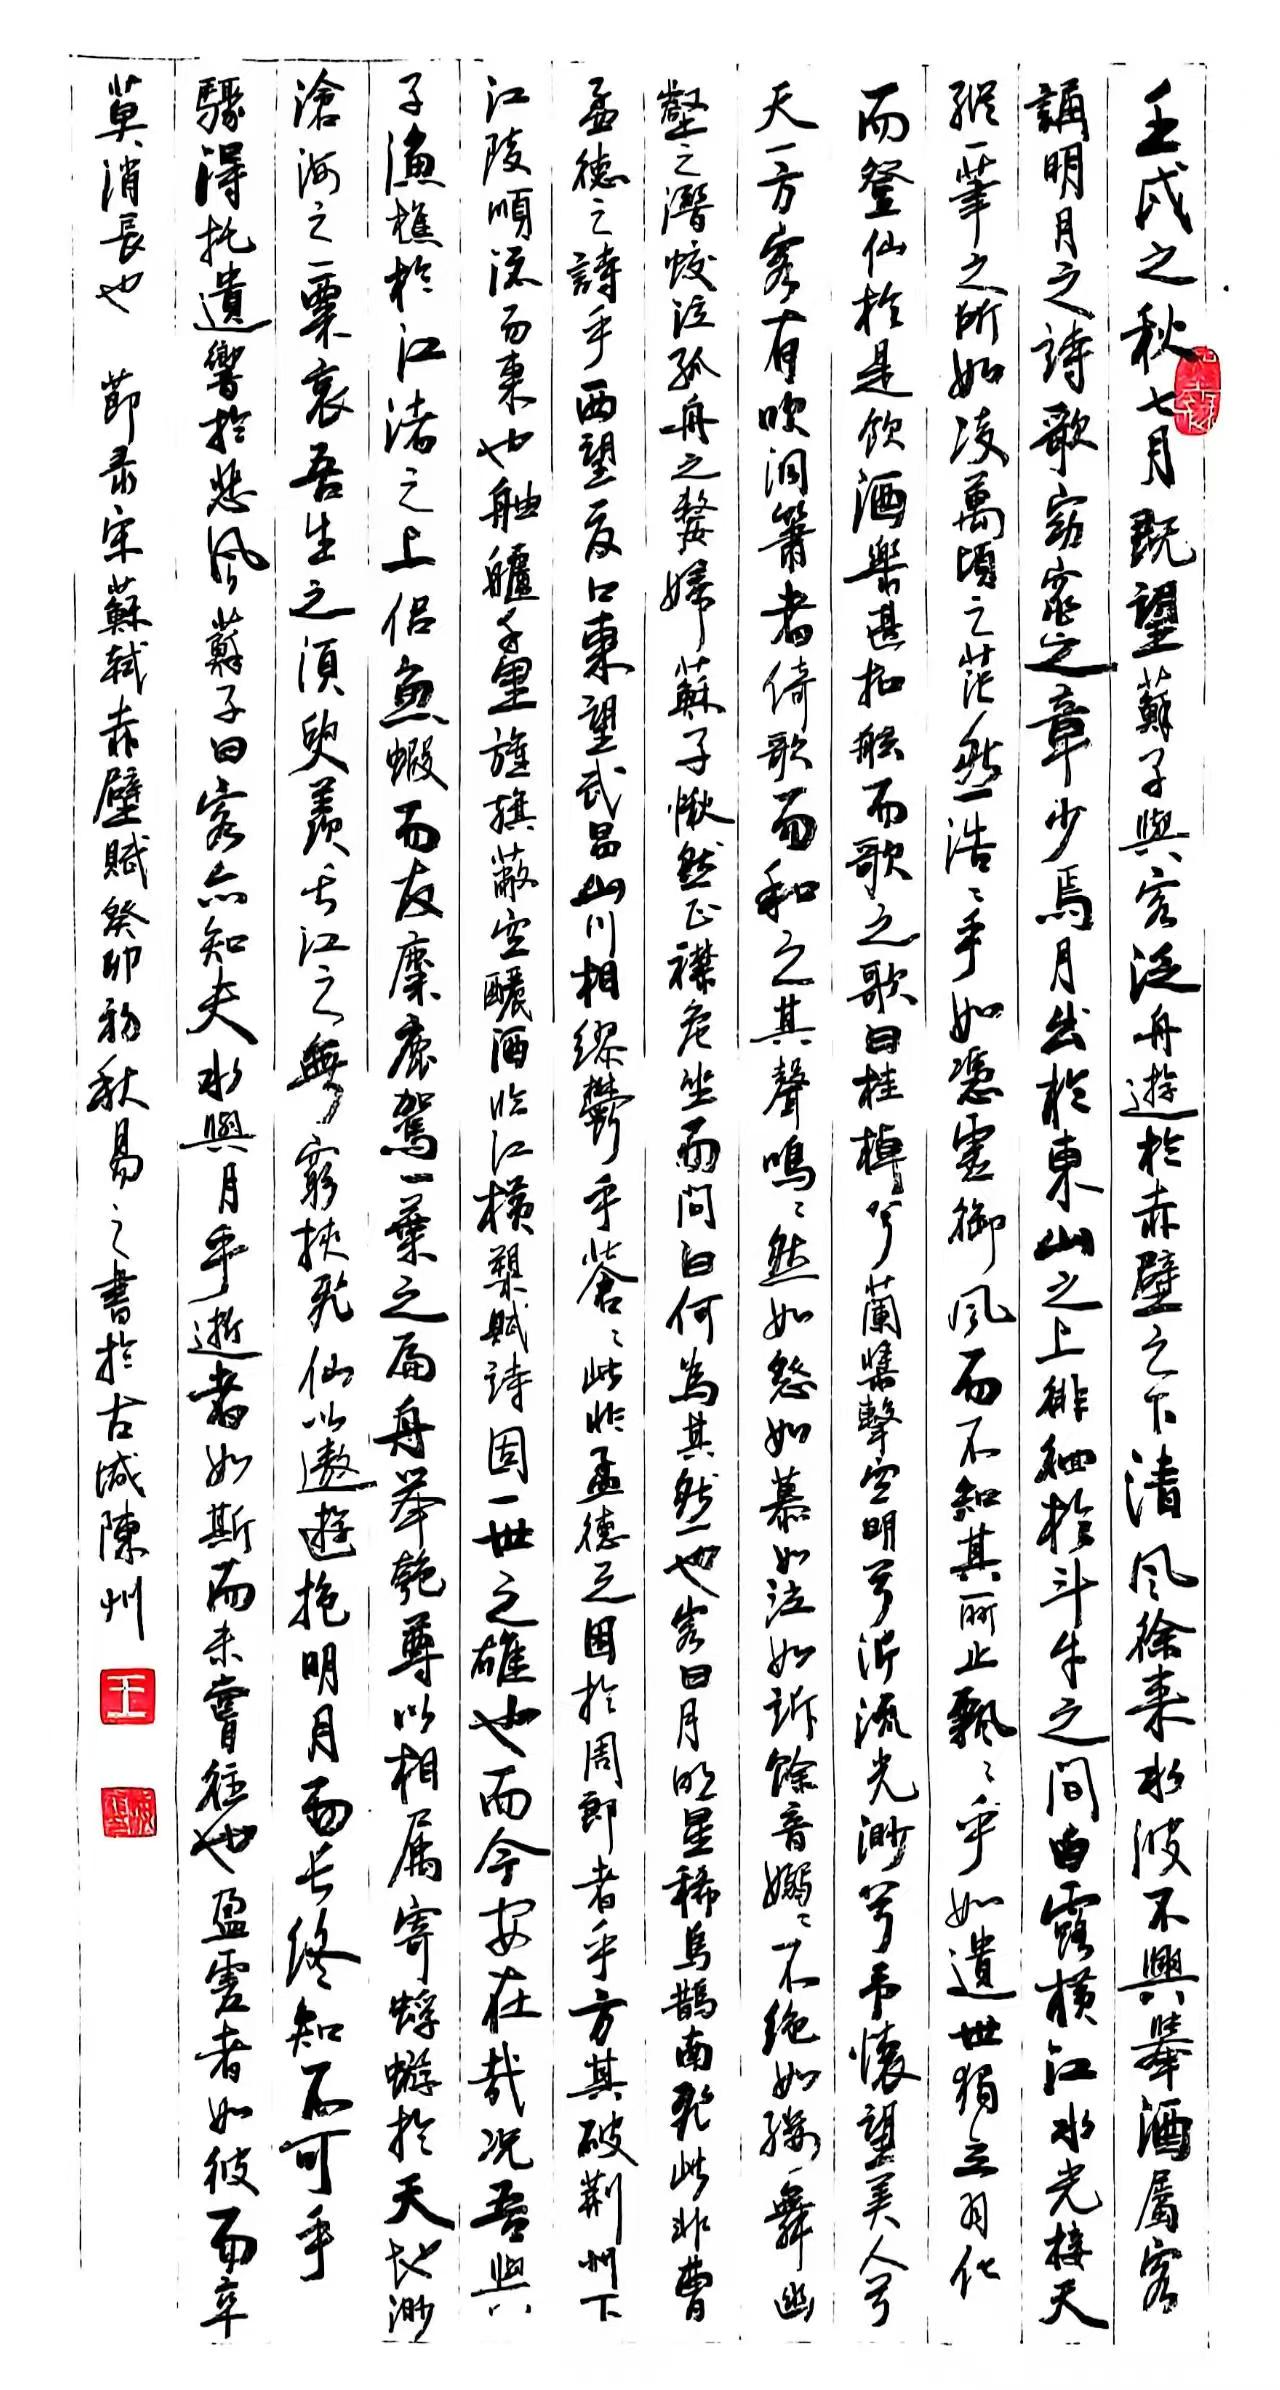 壬戌之秋七月既望蘇子與客泛舟遊於赤壁之下清風徐來水波不興舉酒屬客
誦明月之詩歌窈窕之章少焉月出於東山之上徘徊於斗牛之間白露橫江水光接天
縱一葦之所如凌萬頃之茫然浩〻乎如憑虛御風而不知其所止飄〻乎如遺世獨立羽化
而登仙於是飲酒樂甚扣舷而歌之歌曰桂棹兮蘭槳擊空明兮泝流光渺兮予懷望美人兮
天一方客有吹洞簫者倚歌而和之其聲嗚〻然如怨如慕如泣如訴餘音嫋〻不絕如縷舞幽
壑之潛蛟泣孤舟之嫠婦蘇子愀然正襟危坐而問曰何為其然也客曰月明星稀烏鵲南飛此非曹
孟德之詩乎西望夏口東望武昌山川相繆鬱乎蒼〻此非孟德之困於周郎者乎方其破荆州下
江陵順流而東也舳艫千里旌旗蔽空釃酒臨江橫槊賦詩固一世之雄也而今安在哉況吾與
子漁樵於江渚之上侣魚蝦而友麋鹿駕一葉之扁舟舉匏尊以相屬寄蜉蝣於天地渺
滄海之一粟哀吾生之須臾羨長江之無窮挾飛仙以遨遊抱明月而長終知不可乎
驟得托遺響於悲風蘇子曰客亦知夫水與月乎逝者如斯而未嘗往也盈虛者如彼而卒
莫消長也 節录宋蘇軾赤壁賦癸卯初秋易之書於古城陳州
王